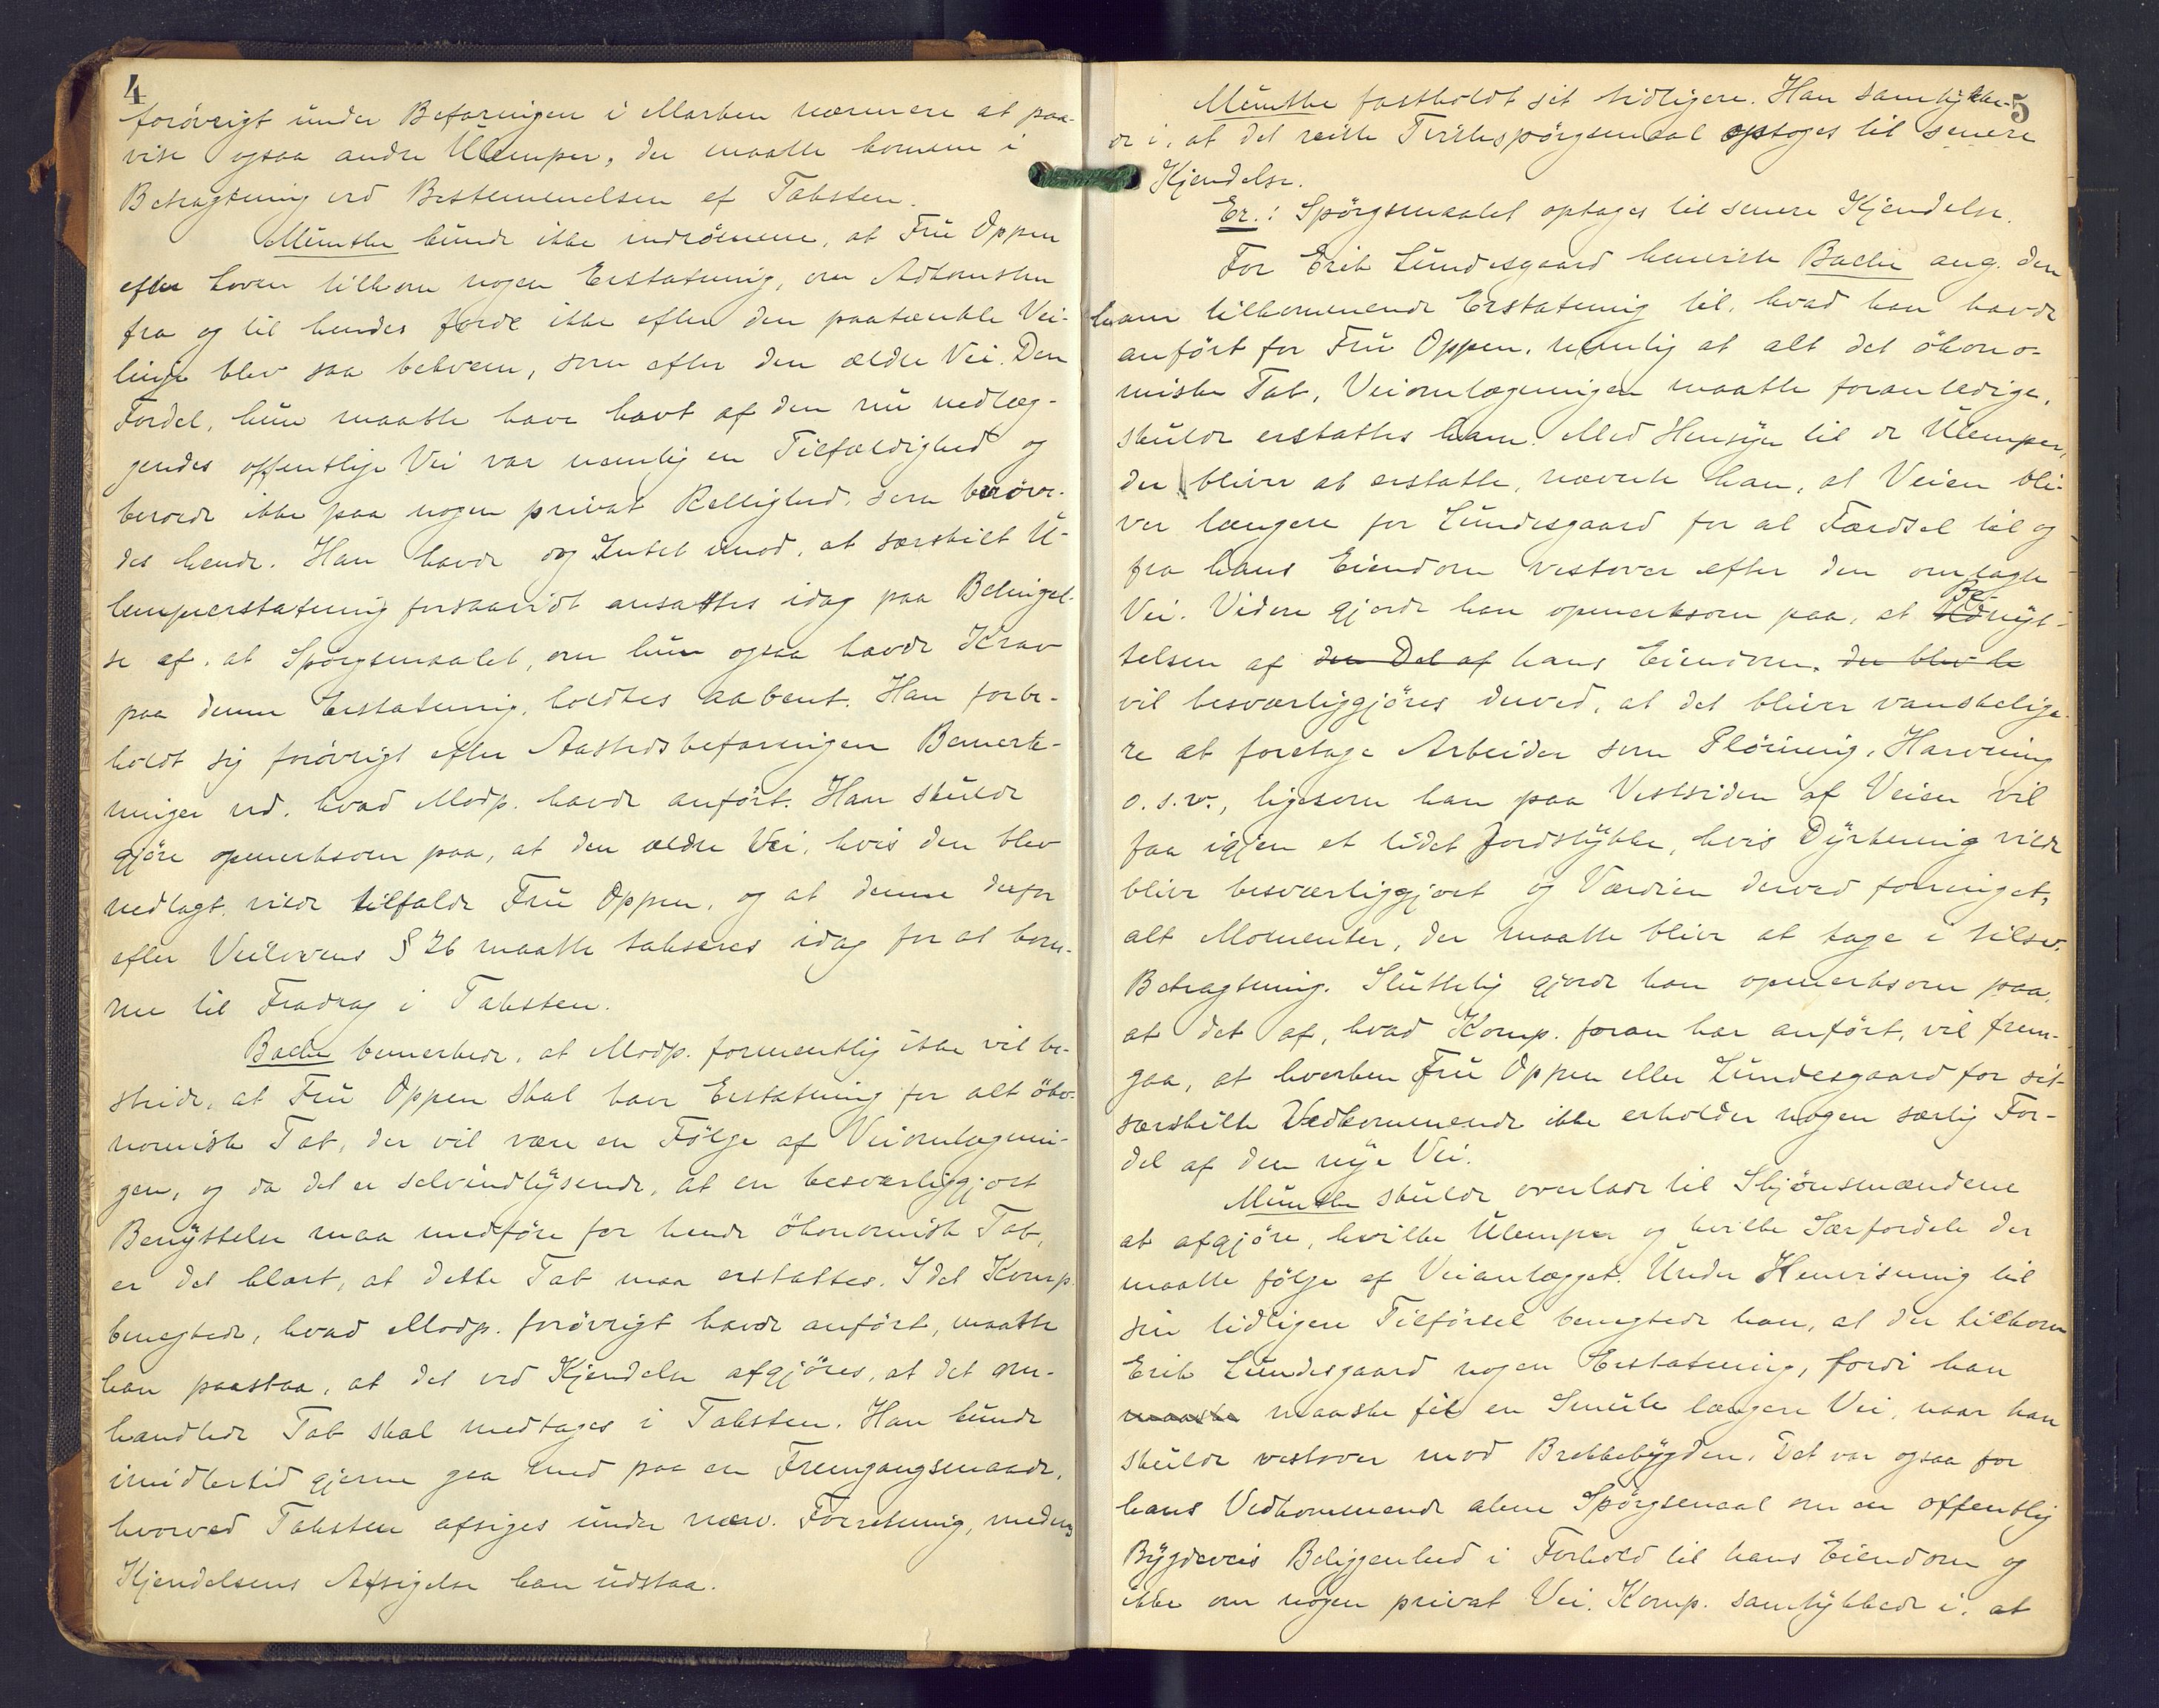 4
forøvrigt under Befaringen i Marken nærmere at paa-
vise ogsaa andre Ulemper, der maatte komme i
Betragtning ved Bestemmelsen af Taksten.
Münster kunde ikke indrømme, at Fru Oppen
efter Loven tilkom nogen Erstatning, om Adkomsten
fra og til hendes Jorde ikke efter den paatænkte Vei-
linje blev saa bekvem, som efter den ældre Vei. Den
Fordel, hun maatte have havt af den nu nedlæg-
gendes offentlige Vei var nemlig en Tilfældighed og
beroede ikke paa nogen privat Rettighed, som berøve-
des hende. Han havde dog Intet imod, at særskilt U-
lempeerstatning forsaavidt ansattes idag paa Betingel-
se af, at Spørgsmaalet, om hun ogsaa havde Krav
paa denne Erstatning, holdtes aabent. Han forbe-
holdt sig forøvrigt efter Aastedsbefaringen Bemærk-
ninger ved, hvad Modp. havde anført. Han skulde
gjøre opmerksom paa, at den ældre Vei, hvis den blev
nedlagt, vilde tilfalde Fru Oppen, og at denne derfor
efter Veilovens § 26 maatte takseres idag for at kom-
me til Fradrag i Taksten.
Bache bemerkede, at Modp. formentlig ikke vil be-
stride, at Fru Oppen skal have Erstatning for alt øko-
nomisk Tab, der vil være en Følge af Veiomlægnin-
gen, og da det er selvindlysende, at en besværliggjort
Benyttelse maa medføre for hende økonomisk Tab,
er det klart, at dette Tab maa erstattes. Idet Komp.
benegtede, hvad Modp. forøvrigt havde anført, maatte
han paastaa, at det ved Kjendelse afgjøres, at det om-
handlede Tab skal medtages i Taksten. Han kunde
imidlertid gjerne gaa med paa en Fremgangsmaade,
hvorved Taksten afsiges under nærv. Forretning, medens
Kjendelsens Afsigelse kan udstaa.
5
Münster fastholdt sit tidligere. Han samtykke-
de i, at det reiste Tvistespørgsmaal optoges til senere
Kjendelse.
Er.: Spørgsmaalet optages til senere Kjendelse.
For Erik Lundesgaard henviste Bache ang. den
ham tilkommende Erstatning til, hvad han havde
anført for Fru Oppen, nemlig at alt det økono-
miske Tab, Veiomlægningen maatte foranledige,
skulde erstattes ham. Med Hensyn til de Ulemper,
der bliver at erstatte, nævnte han, at Veien bli-
ver længere for Lundesgaard for al Færdsel til og
fra hans Eiendom vestover efter den omlagte
Vei. Videre gjorde han opmerksom paa, at Benyt-
telsen af den Del af hans Eiendom, der blev be
vil besværliggjøres derved, at det bliver vanskelige-
re at foretage Arbeider som Pløining, Harvning
o.s.v., ligesom han paa Vestsiden af Veien vil
faa igjen et lidet Jordstykke, hvis Dyrkning vilde
blive besværliggjort og Værdien derved forringet,
alt Momenter, der maatte blive at tage i tilsv.
Betragtning. Sluttelig gjorde han opmerksom paa,
at det af, hvad Komp. foran har anført, vil frem-
gaa, at hverken Fru Oppen eller Lundesgaard for sit
særskilte Vedkommende ikke erholder nogen særlig For-
del af den nye Vei.
Münster skulde overlade til Skjønsmændene
at afgjøre, hvilke Ulemper og hvilke Særfordele der
maatte følge af Veianlægget. Under Henvisning til
sin tidligere Tilførsel benegtede han, at der tilkom
Erik Lundesgaard nogen Erstatning, fordi han
maaske maaske fik en Smule længere Vei, naar han
skulde vestover mod Brekkebygden. Det var ogsaa for
hans Vedkommende alene Spørgsmaal om en offentlig
Bygdeveis Beliggenhed i Forhold til hans Eiendom og
ikke om nogen privat Vei. Komp. samtykkede i, at